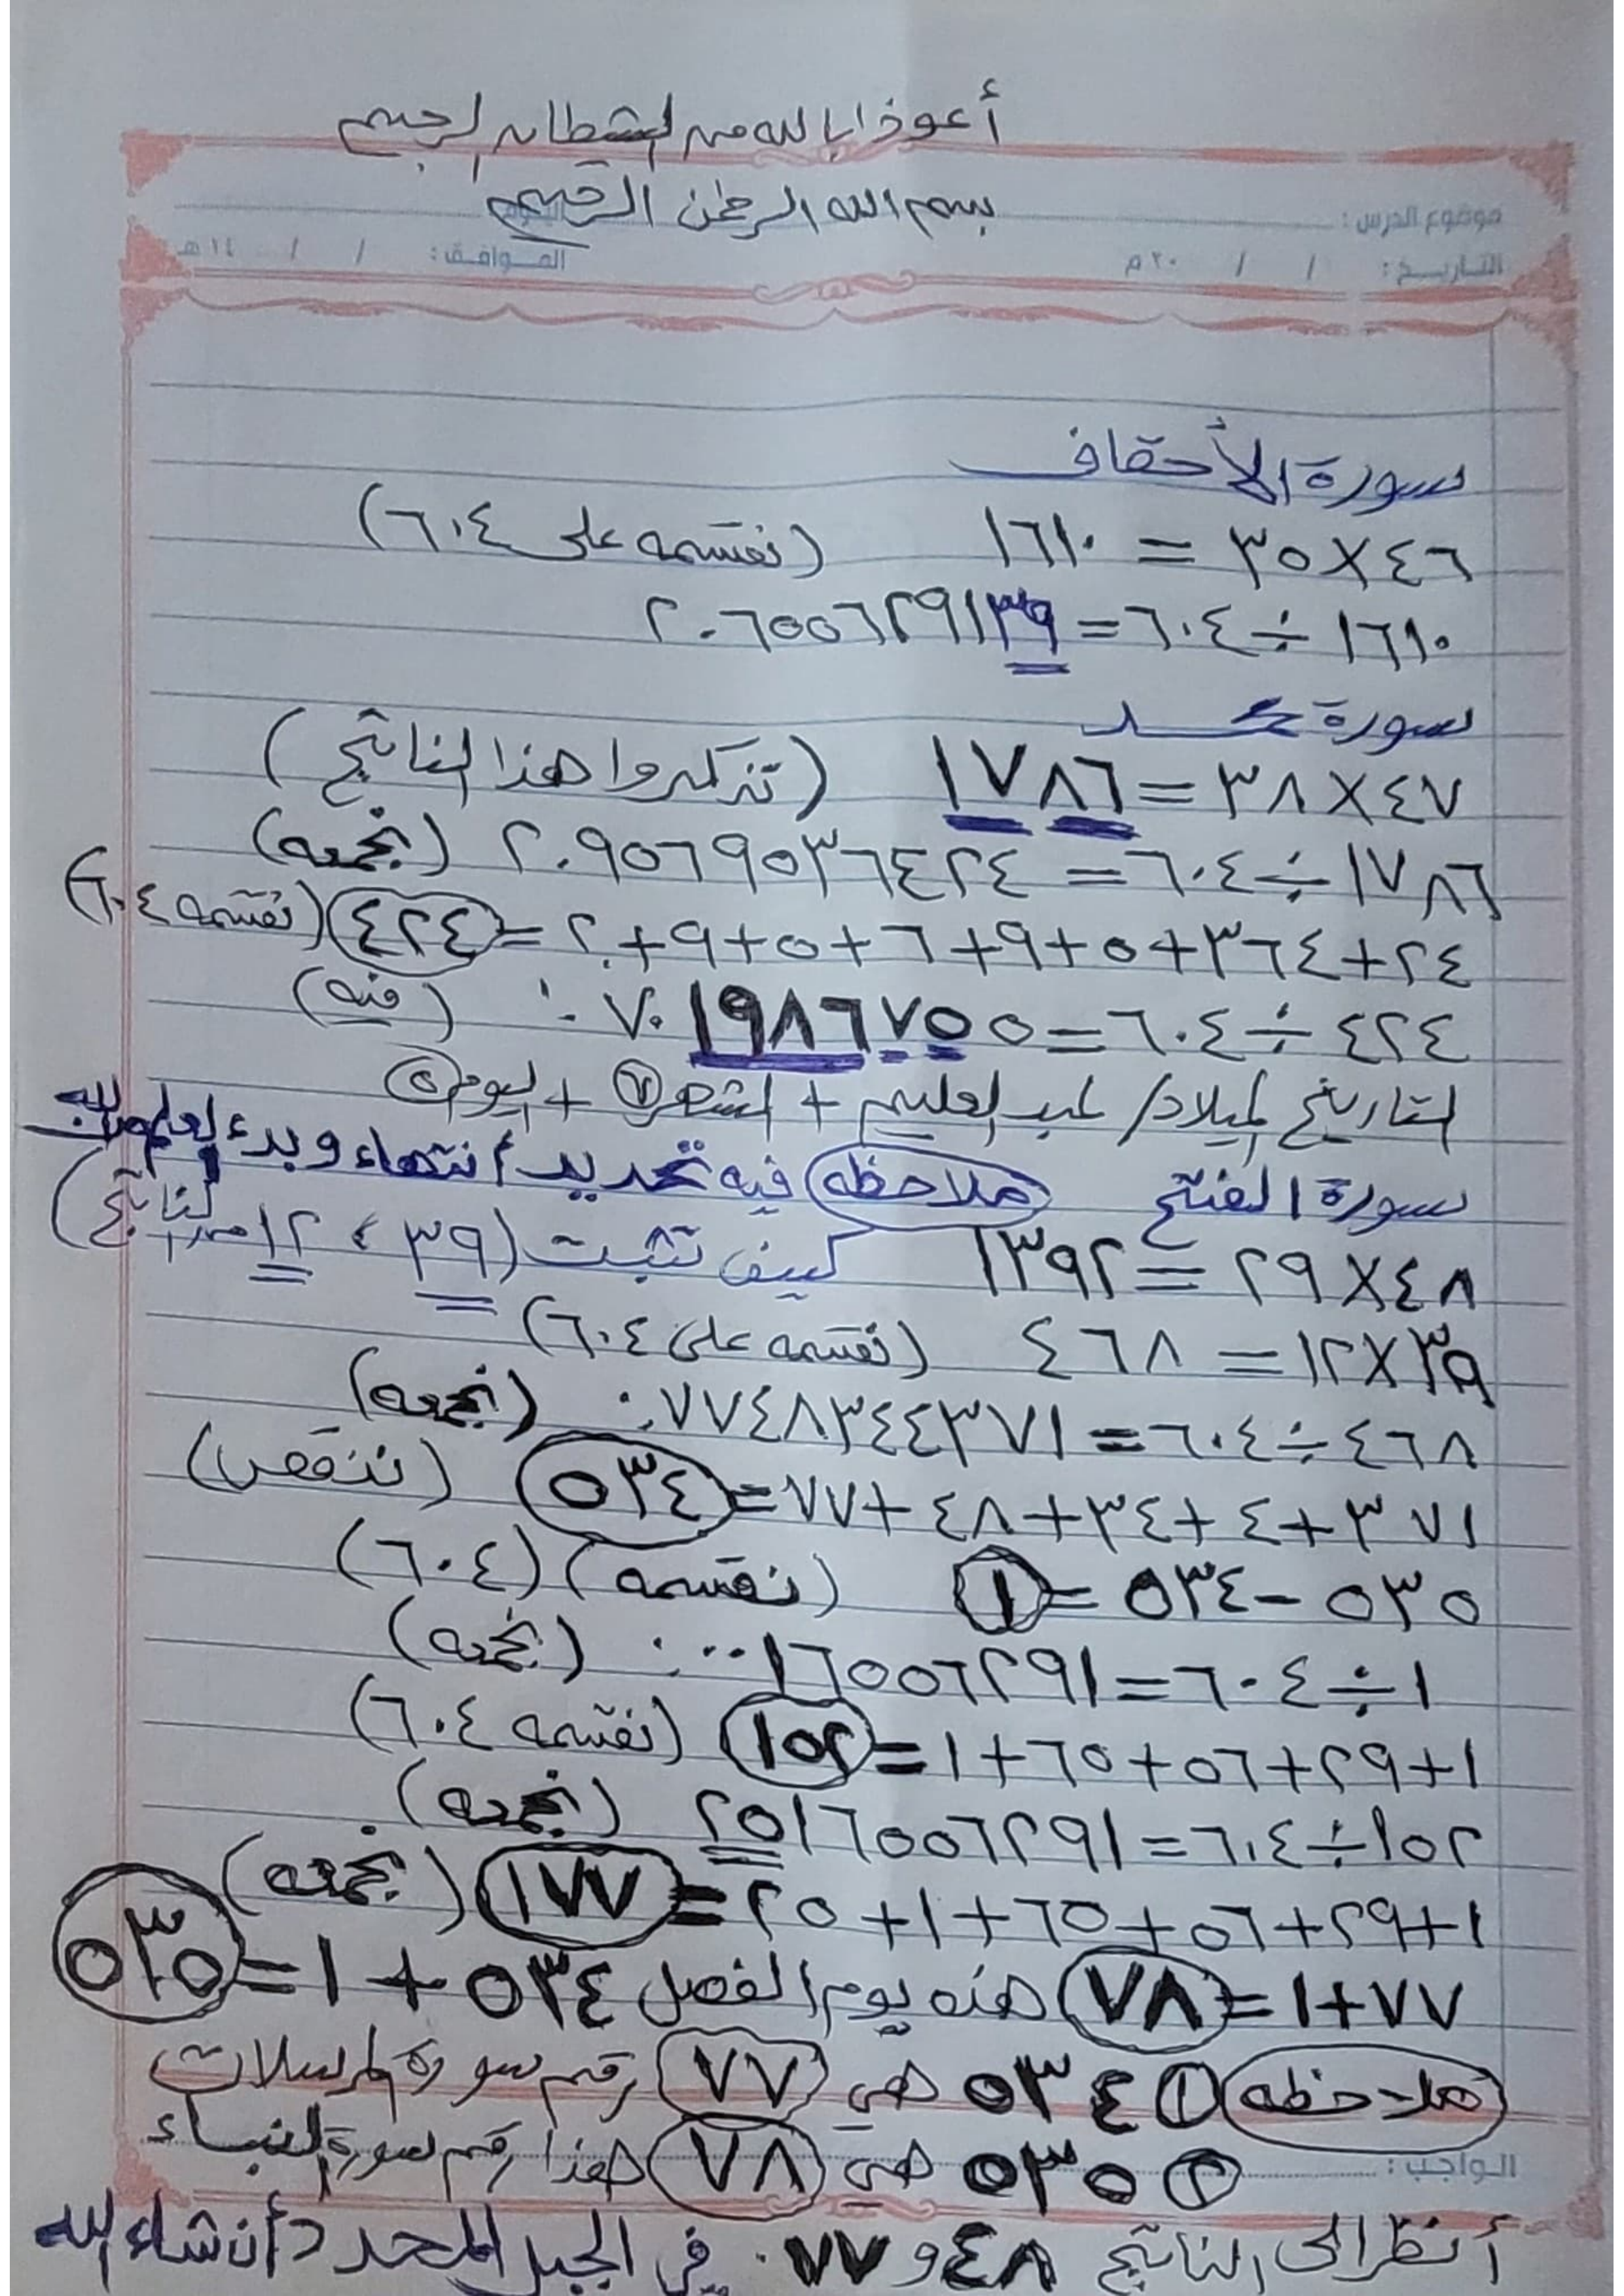 أعوذ بالله من الشيطان الرجيم
بسم الله الرحمن الرحيم
موضوع الدرس :
التاريخ : / / ٢٠ م الموافق : / / ١٤ هـ
سورة الأحقاف
٤٦ × ٣٥ = ١٦١٠ (نقسمه على ٦٠٤)
١٦١٠ ÷ ٦٠٤ = ٢.٦٥٥٦٢٩١٣٩
سورة محمد
٤٧ × ٣٨ = ١٧٨٦ (تذكروا هذا الناتج)
١٧٨٦ ÷ ٦٠٤ = ٢.٩٥٦٩٥٣٦٤٢٤ (نجمعه)
٢٤ + ٣٦٤ + ٥ + ٩ + ٦ + ٥ + ٩ + ٢. = ٤٢٤ (نقسمه ٦٠٤)
٤٢٤ ÷ ٦٠٤ = ٧٠١٩٨٦٧٥٥.٠ (فيه)
التاريخ الميلاد / لعبد العليم + الشهر ٧ + اليوم ٥
سورة الفتح ملاحظه فيه تحديد أنتهاء وبدء
٤٨ × ٢٩ = ١٣٩٢ كيف تثبت (٣٩ ، ١٢ من الناتج)
٣٩ × ١٢ = ٤٦٨ (نقسمه على ٦٠٤)
٤٦٨ ÷ ٦٠٤ = ٠.٧٧٤٨٣٤٤٣٧١ (نجمعه)
٣٧١ + ٤ + ٣٤ + ٤٨ + ٧٧ = ٥٣٤ (ننقص)
٥٣٥ - ٥٣٤ = ١ (نقسمه) (٦٠٤)
١ ÷ ٦٠٤ = ٠.٠٠١٦٥٥٦٢٩١ (نجمعه)
١ + ٢٩ + ٥٦ + ٦٥ + ١ = ١٥٢ (نقسمه ٦٠٤)
١٥٢ ÷ ٦٠٤ = ٢٥١٦٥٥٦٢٩١ (نجمعه)
١ + ٢٩ + ٥٦ + ٦٥ + ١ + ٢٥ = ١٧٧ (نجمعه)
٧٧ + ١ = ٧٨ هذه يوم الفصل ٥٣٤ + ١ = ٥٣٥
ملاحظه ١ ٥٣٤ هي ٧٧ رقم سورة المرسلات
٢ ٥٣٥ هي ٧٨ هذا رقم سورة النبساء
الواجب :
أنظر الى الناتج ٤٨ و ٧٧. في الجبل المحدد أن شاء الله